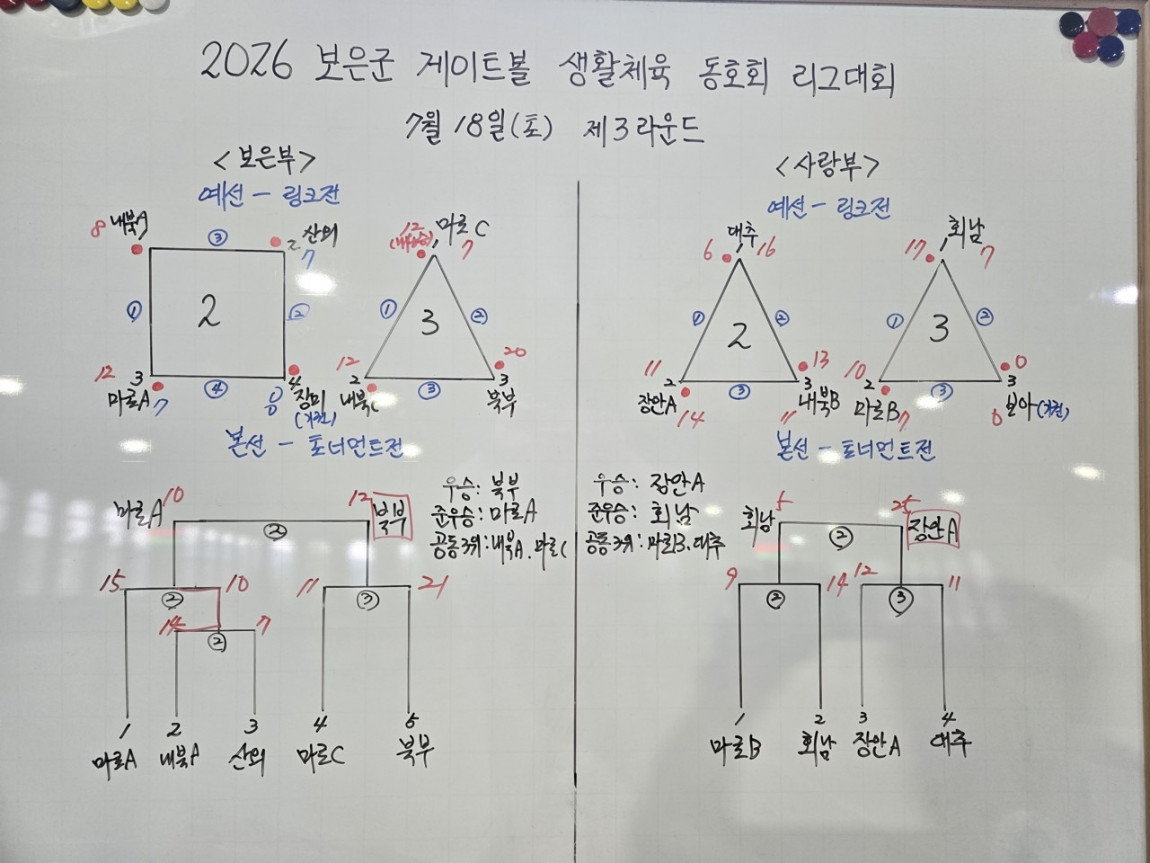 2026 보은군 게이트볼 생활체육 동호회 리그대회
7월 18일(토) 제3라운드
<보은부>
예선 - 링크전
8 내북A
③
2 산외
7
①
2
②
12 3
마로A 7
④
4
장미
(기권)
0
12
(내부승)
1 마로C
7
①
3
②
12
2
내북C
③
20
3
북부
본선 - 토너먼트전
마로A 10
②
12 북부
우승: 북부
준우승: 마로A
공동3위: 내북A. 마로C
15
②
10
14
②
7
11
③
21
1 2 3 4 5
마로A 내북A 산외 마로C 북부
<사랑부>
예선 - 링크전
대추
6 1 16
①
2
②
11
2
장안A
14
③
13
3
내북B
11
회남
17 1 7
①
3
②
10
2
마로B
7
③
0
3
보아(기권)
0
본선 - 토너먼트전
우승: 장안A
준우승: 회남
공동3위: 마로B. 대추
회남 5
②
25 장안A
9
②
14
12
③
11
1 2 3 4
마로B 회남 장안A 대추